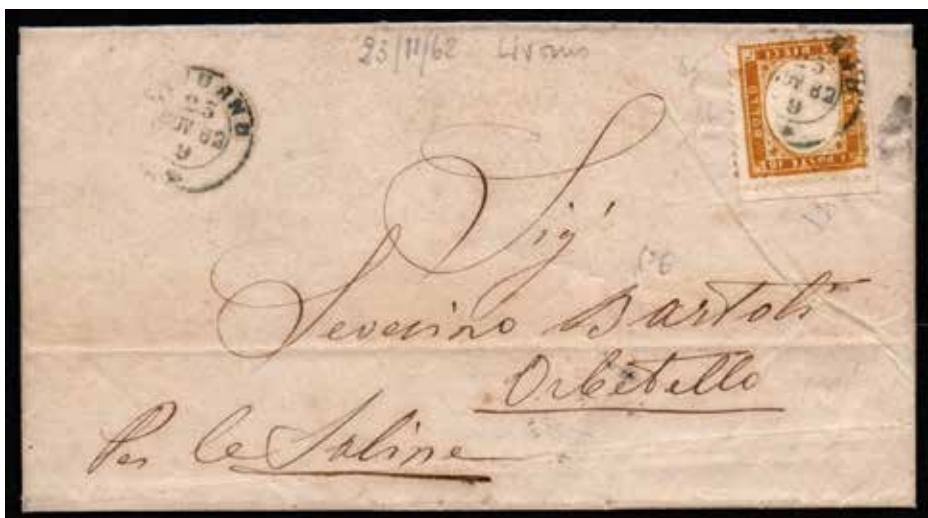 23/11/62 Livorno
LIVORNO
23
NOV 62
9
Sig.
Severino Bartoli
Orbetello
Per le Saline